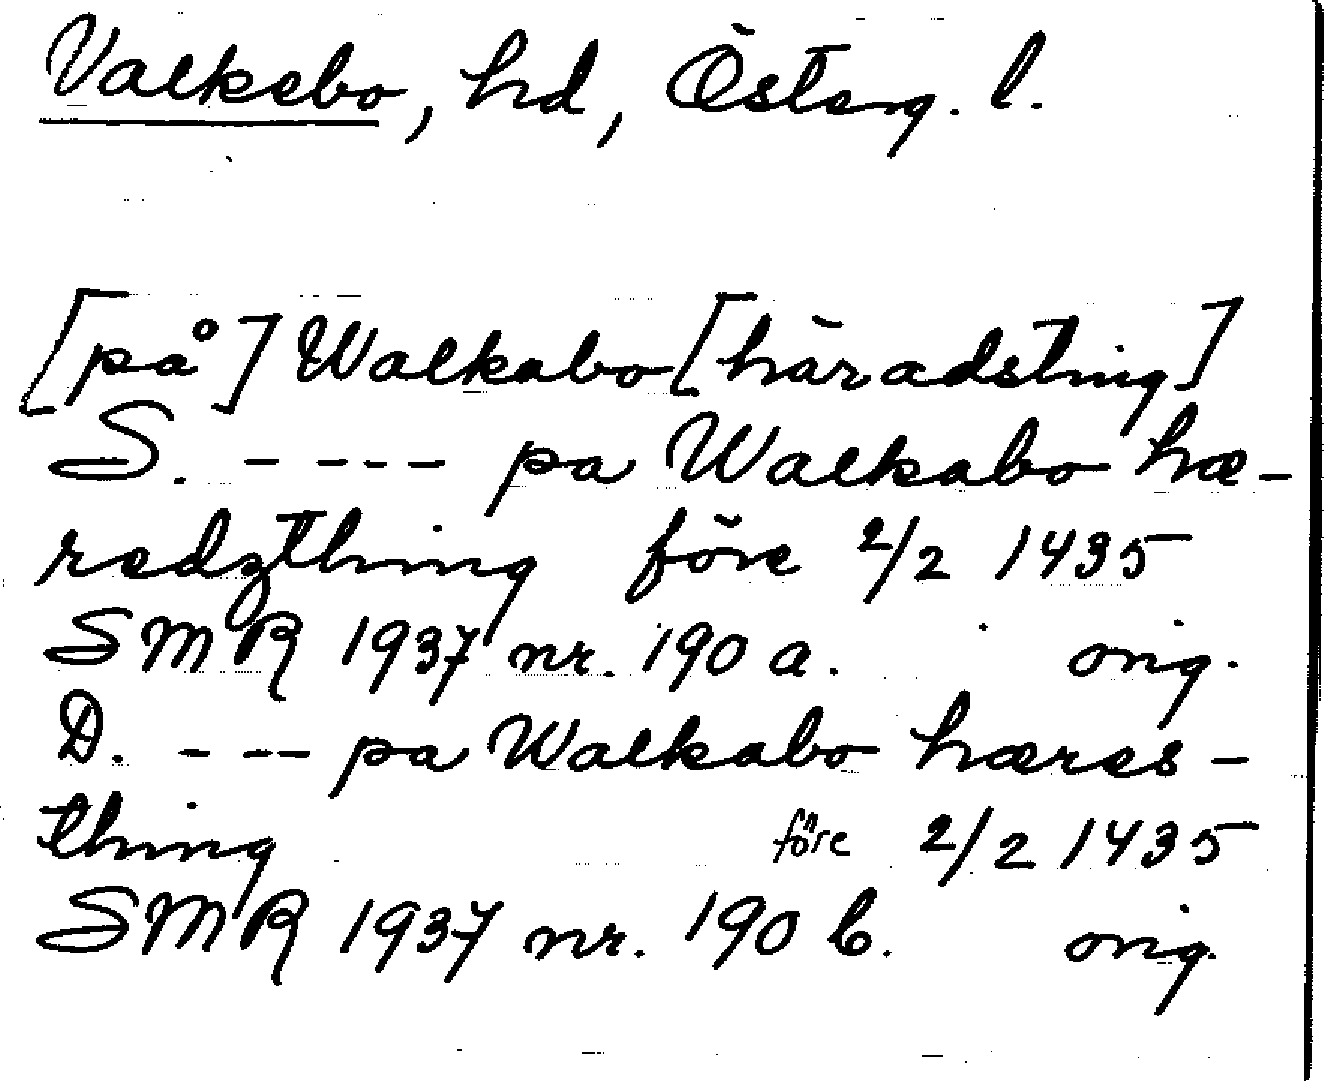 Valkebo, hd, Österg. l.
[på] Walkabo [häradsting]
S. - - - - pa Walkabo hæ-
redzthing före 2/2 1435
SMR 1937 nr. 190 a. orig.
D. - - - pa Walkabo hæres-
thing före 2/2 1435
SMR 1937 nr. 190 b. orig.